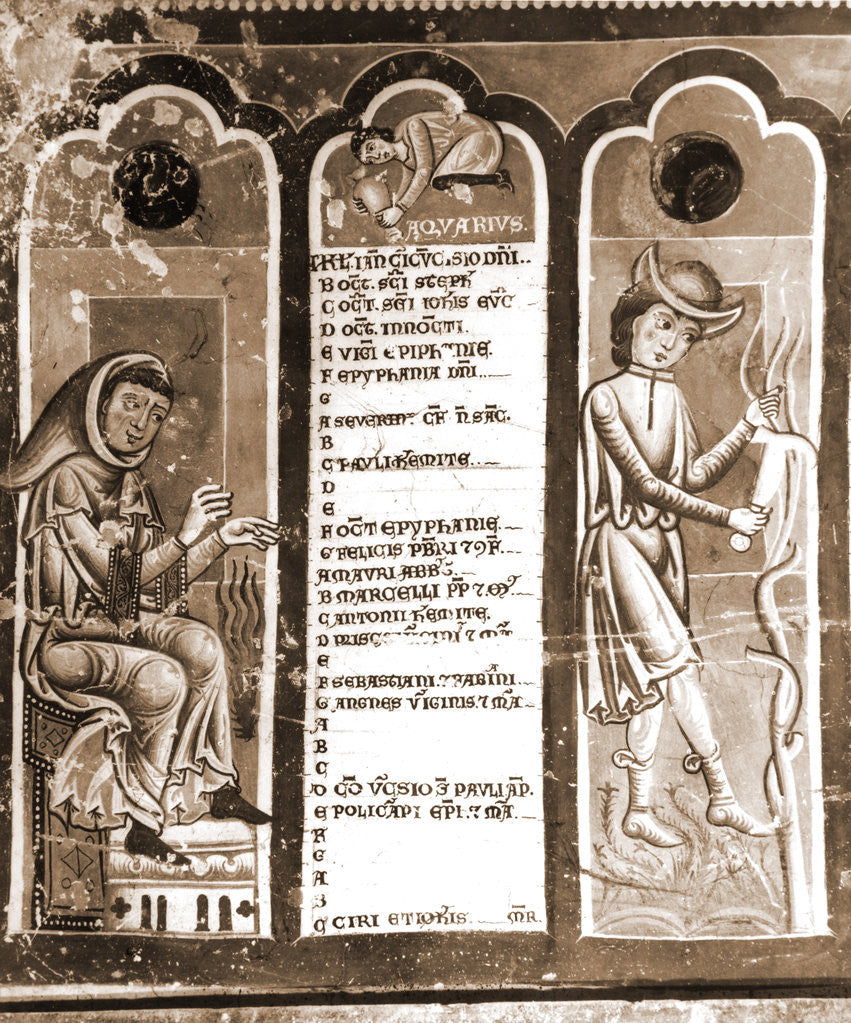 AQVARIVS.
KL̄. IAN̄ C̄ICŪC̄SIO DN̄I..
B OC̄T. SC̄I STEPH̄
C OC̄T. SC̄I IOHIS EVC̄
D OC̄T. INNOC̄TI.
E VIGI EPIPHANIE.
F EPYPHANIA DN̄I....
G
A SEVERINI CF̄ N̄ SAC̄.
B
C PAVLI HEMITE....
D
E
F OC̄T EPYPHANIE...
G FELICIS PB̄RI
A MAVRI ABB̄
B MARCELLI PP̄ ⁊ M̄
C ANTONII HEMITE.
D PRISC ⁊ M̄A
E
F SEBASTIANI. ⁊ FABIANI...
G ANGNES VIGINIS. ⁊ M̄A..
A
B
C
D CŌ VC̄SIO S̄ PAVLI AP̄.
E POLICARPI EP̄I. ⁊ M̄A.
F
G
A
B
C CIRI ET IOHIS. M̄R.